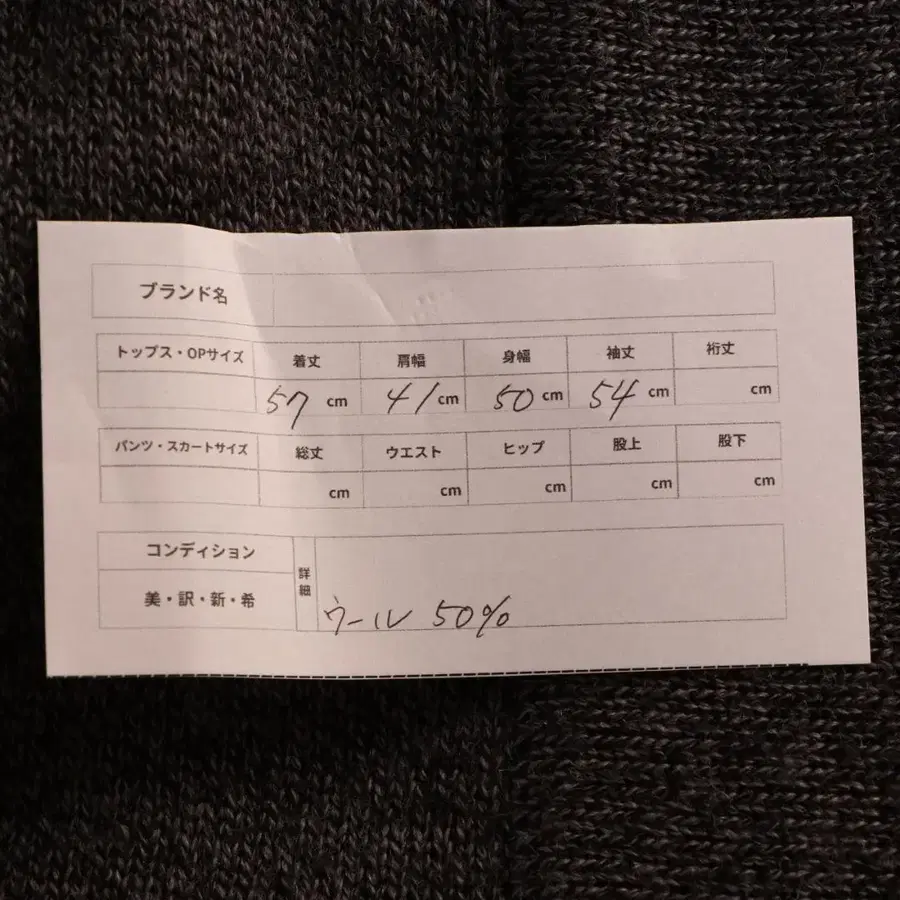 ブランド名
トップス・OPサイズ 着丈 肩幅 身幅 袖丈 裄丈
57 cm 41 cm 50 cm 54 cm cm
パンツ・スカートサイズ 総丈 ウエスト ヒップ 股上 股下
cm cm cm cm cm
コンディション
詳細
美・訳・新・希
ウール 50%